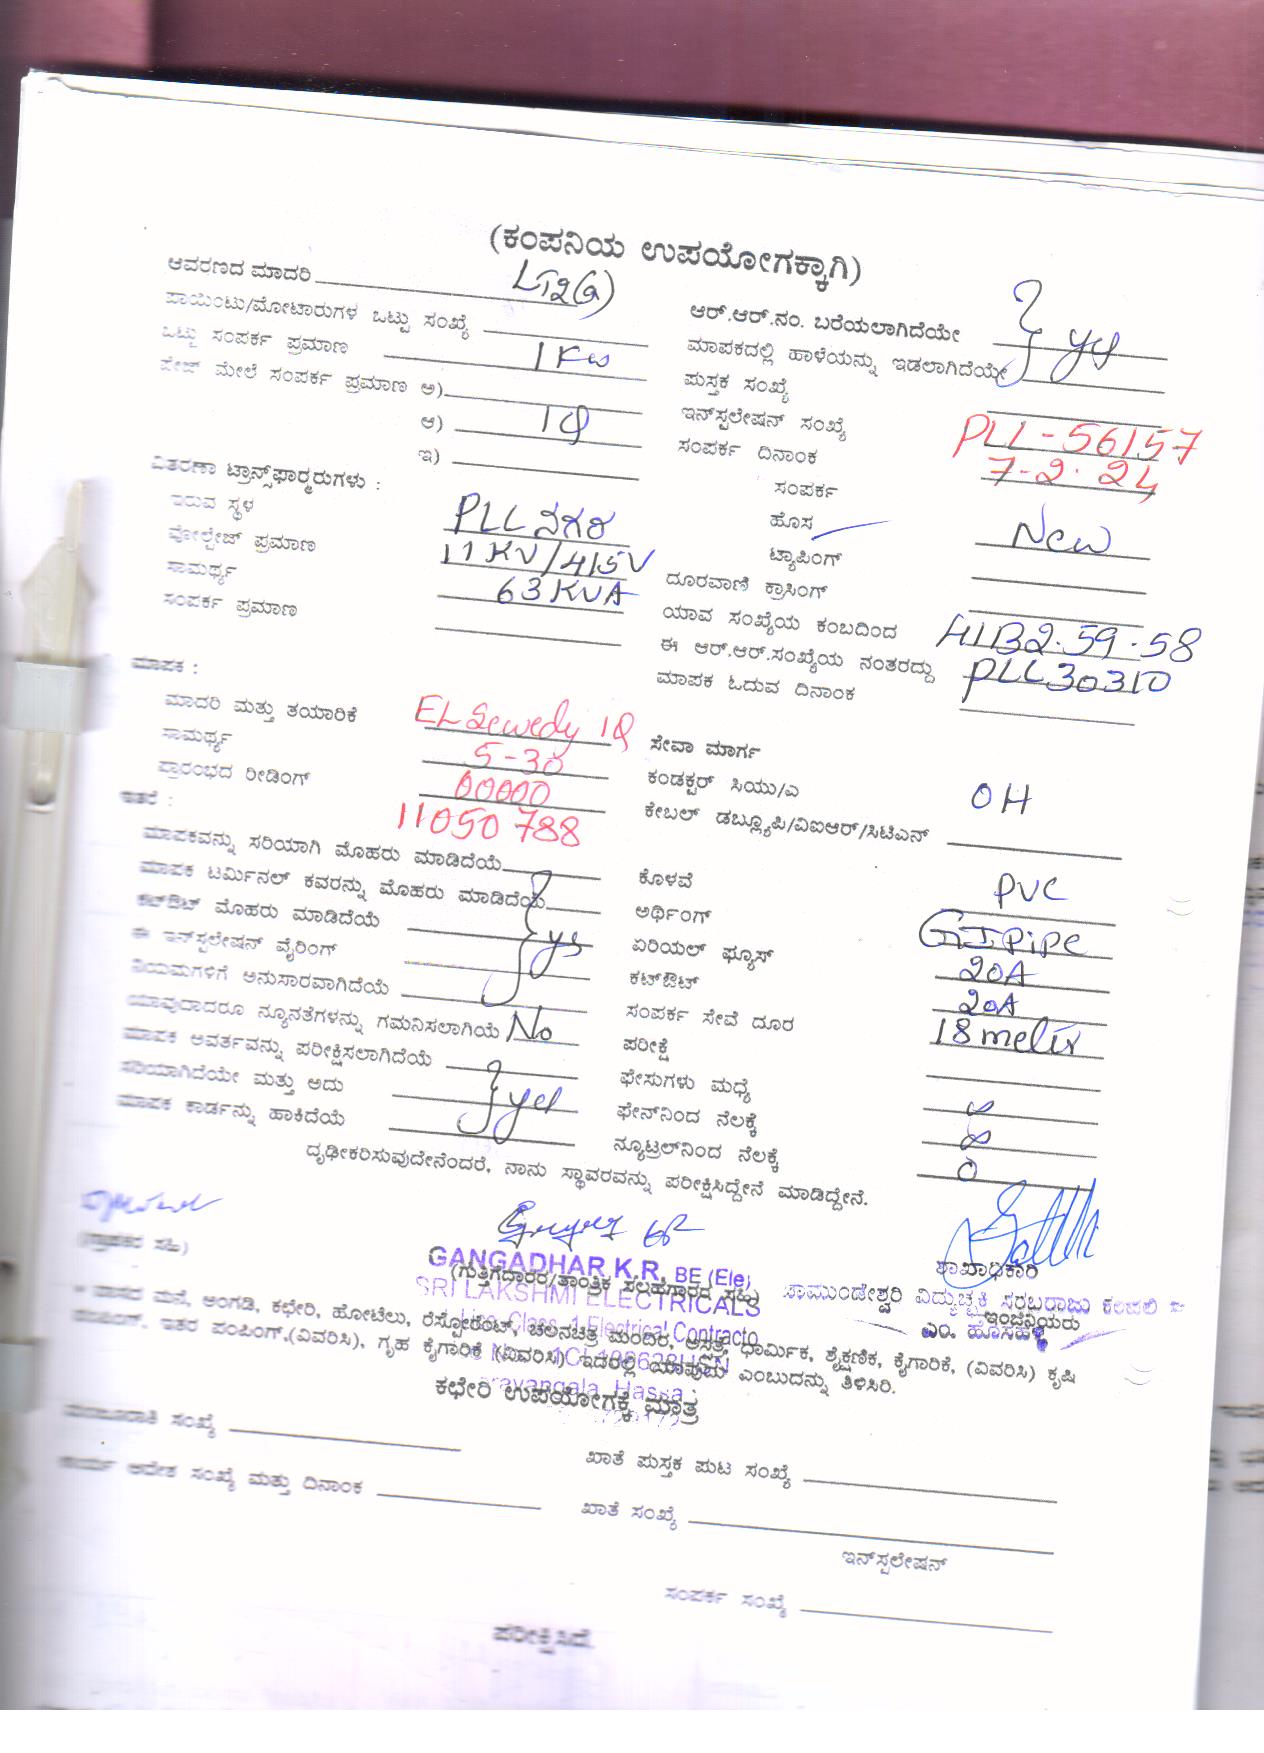 (ಕಂಪನಿಯ ಉಪಯೋಗಕ್ಕಾಗಿ)
ಆವರಣದ ಮಾದರಿ LT2(a)
ಪಾಯಿಂಟು/ಮೋಟಾರುಗಳ ಒಟ್ಟು ಸಂಖ್ಯೆ
ಒಟ್ಟು ಸಂಪರ್ಕ ಪ್ರಮಾಣ 1 Kw
ಪೇಜ್ ಮೇಲೆ ಸಂಪರ್ಕ ಪ್ರಮಾಣ ಅ)
ಆ) 1Φ
ಇ)
ವಿತರಣಾ ಟ್ರಾನ್ಸ್‌ಫಾರ್‍ಮರುಗಳು :
ಇರುವ ಸ್ಥಳ PLL ನಗರ
ವೋಲ್ಟೇಜ್ ಪ್ರಮಾಣ 11KV/415V
ಸಾಮರ್ಥ್ಯ 63 KVA
ಸಂಪರ್ಕ ಪ್ರಮಾಣ
ಮಾಪಕ :
ಮಾದರಿ ಮತ್ತು ತಯಾರಿಕೆ EL Sewedy 1Φ
ಸಾಮರ್ಥ್ಯ 5-30
ಪ್ರಾರಂಭದ ರೀಡಿಂಗ್ 00000
ಇತರೆ : 11050788
ಮಾಪಕವನ್ನು ಸರಿಯಾಗಿ ಮೊಹರು ಮಾಡಿದೆಯೆ
ಮಾಪಕ ಟರ್ಮಿನಲ್ ಕವರನ್ನು ಮೊಹರು ಮಾಡಿದೆಯೆ
ಕಟ್‌ಔಟ್ ಮೊಹರು ಮಾಡಿದೆಯೆ
ಈ ಇನ್‌ಸ್ಟಲೇಷನ್ ವೈರಿಂಗ್ } yes
ನಿಯಮಗಳಿಗೆ ಅನುಸಾರವಾಗಿದೆಯೆ
ಯಾವುದಾದರೂ ನ್ಯೂನತೆಗಳನ್ನು ಗಮನಿಸಲಾಗಿಯೆ No
ಮಾಪಕ ಅವರ್ತವನ್ನು ಪರೀಕ್ಷಿಸಲಾಗಿದೆಯೆ
ಸರಿಯಾಗಿದೆಯೇ ಮತ್ತು ಅದು } yes
ಮಾಪಕ ಕಾರ್ಡನ್ನು ಹಾಕಿದೆಯೆ
ಆರ್.ಆರ್.ನಂ. ಬರೆಯಲಾಗಿದೆಯೇ } yes
ಮಾಪಕದಲ್ಲಿ ಹಾಳೆಯನ್ನು ಇಡಲಾಗಿದೆಯೇ
ಪುಸ್ತಕ ಸಂಖ್ಯೆ
ಇನ್‌ಸ್ಟಲೇಷನ್ ಸಂಖ್ಯೆ PLL-56157
ಸಂಪರ್ಕ ದಿನಾಂಕ 7-2-24
ಸಂಪರ್ಕ
ಹೊಸ New
ಟ್ಯಾಪಿಂಗ್
ದೂರವಾಣಿ ಕ್ರಾಸಿಂಗ್
ಯಾವ ಸಂಖ್ಯೆಯ ಕಂಬದಿಂದ H1B2.59.58
ಈ ಆರ್.ಆರ್.ಸಂಖ್ಯೆಯ ನಂತರದ್ದು PLL30310
ಮಾಪಕ ಓದುವ ದಿನಾಂಕ
ಸೇವಾ ಮಾರ್ಗ
ಕಂಡಕ್ಟರ್ ಸಿಯು/ಎ OH
ಕೇಬಲ್ ಡಬ್ಲ್ಯೂಪಿ/ವಿಐಆರ್/ಸಿಟಿಎನ್
ಕೊಳವೆ PVC
ಅರ್ಥಿಂಗ್ GI Pipe
ಏರಿಯಲ್ ಫ್ಯೂಸ್ 20A
ಕಟ್‌ಔಟ್ 20A
ಸಂಪರ್ಕ ಸೇವೆ ದೂರ 18 metir
ಪರೀಕ್ಷೆ
ಫೇಸುಗಳು ಮಧ್ಯೆ ∞
ಫೇಸ್‌ನಿಂದ ನೆಲಕ್ಕೆ ∞
ನ್ಯೂಟ್ರಲ್‌ನಿಂದ ನೆಲಕ್ಕೆ 0
ದೃಢೀಕರಿಸುವುದೇನೆಂದರೆ, ನಾನು ಸ್ಥಾವರವನ್ನು ಪರೀಕ್ಷಿಸಿದ್ದೇನೆ ಮಾಡಿದ್ದೇನೆ.
(ಗ್ರಾಹಕರ ಸಹಿ)
GANGADHAR K.R. BE (Ele)
(ಗುತ್ತಿಗೆದಾರರ/ತಾಂತ್ರಿಕ ಸಲಹಗಾರರ ಸಹಿ)
SRI LAKSHMI ELECTRICALS
Class-1 Electrical Contracto
ಶಾಖಾಧಿಕಾರಿ
ಚಾಮುಂಡೇಶ್ವರಿ ವಿದ್ಯುಚ್ಛಕ್ತಿ ಸರಬರಾಜು ಕಂಪನಿ
ಇಂಜಿನಿಯರು
* ವಾಸದ ಮನೆ, ಅಂಗಡಿ, ಕಛೇರಿ, ಹೋಟೆಲು, ರೆಸ್ಟೋರೆಂಟ್, ಚಲನಚಿತ್ರ ಮಂದಿರ, ಆಸ್ಪತ್ರೆ, ಧಾರ್ಮಿಕ, ಶೈಕ್ಷಣಿಕ, ಕೈಗಾರಿಕೆ, (ವಿವರಿಸಿ) ಕೃಷಿ
ಪಂಪಿಂಗ್, ಇತರ ಪಂಪಿಂಗ್,(ವಿವರಿಸಿ), ಗೃಹ ಕೈಗಾರಿಕೆ (ವಿವರಿಸಿ) ಇದರಲ್ಲಿ ಯಾವುದು ಎಂಬುದನ್ನು ತಿಳಿಸಿರಿ.
ಕಛೇರಿ ಉಪಯೋಗಕ್ಕೆ ಮಾತ್ರ
ಮಂಜೂರಾತಿ ಸಂಖ್ಯೆ
ಕಾರ್ಯ ಆದೇಶ ಸಂಖ್ಯೆ ಮತ್ತು ದಿನಾಂಕ
ಖಾತೆ ಪುಸ್ತಕ ಪುಟ ಸಂಖ್ಯೆ
ಖಾತೆ ಸಂಖ್ಯೆ
ಇನ್‌ಸ್ಟಲೇಷನ್
ಸಂಪರ್ಕ ಸಂಖ್ಯೆ
ಪರೀಕ್ಷಿಸಿದೆ.